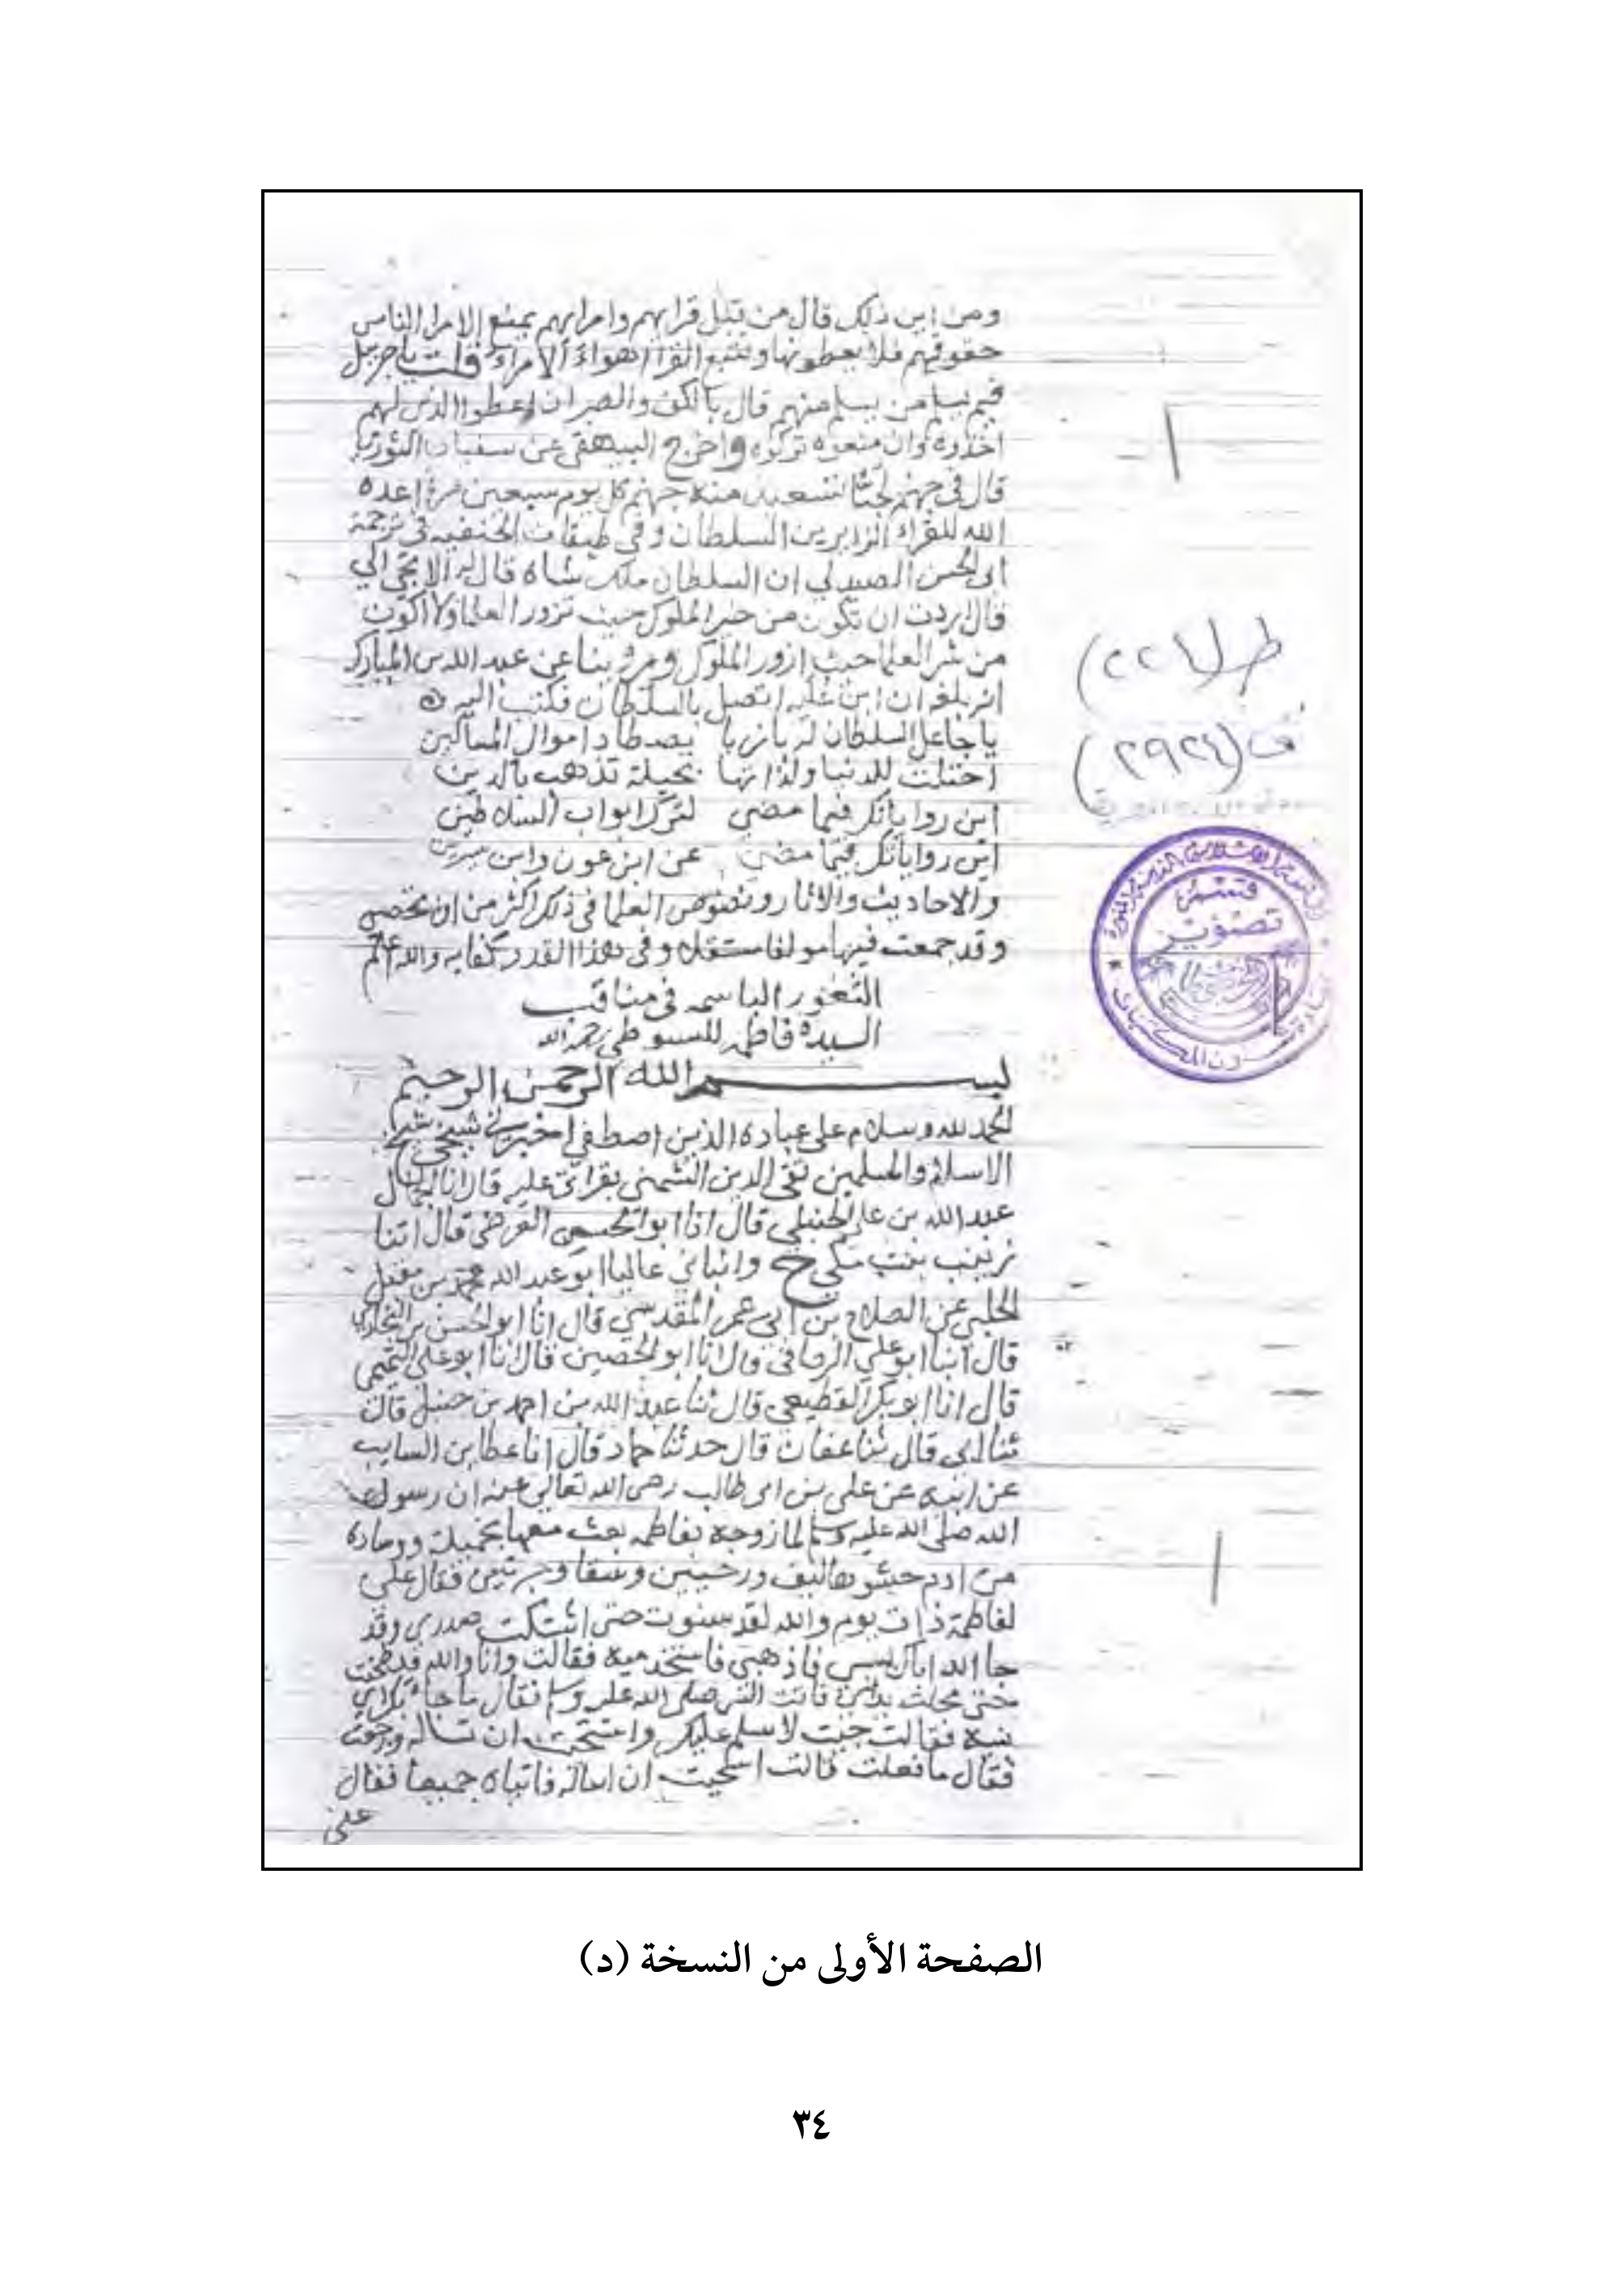 ومن اين ذلك قال من قبل قرايهم وامرايهم يمنع الامرا الناس
حقوقهم فلا يعطونها وتتبع القرا اهواء الامراء قلت ياجبريل
فبم يسلم من يسلم منهم قال بالكف والصبر ان اعطوا الذي لهم
اخذوه وان منعوه تركوه واخرج البيهقي عن سفيان الثوري
قال في جهنم لجبا تستعيذ منه جهنم كل يوم سبعين مرة اعده
الله للقراء الزايرين السلطان وفي طبقات الحنفيه في ترجمة
ابي الحسن الصيدلي ان السلطان ملك شاه قال له لم لا تجي الي
قال اردت ان تكون من خير الملوك حيث تزور العلما ولا اكون
من شر العلما حيث ازور الملوك وروينا عن عبد الله بن المبارك
انه بلغه ان ابن عليه اتصل بالسلطان فكتب اليه
يا جاعل السلطان له بازيا يصطاد اموال المساكين
احتلت للدنيا ولذاتها بحيلة تذهب بالدين
اين رواياتك فيما مضى لترك ابواب السلاطين
اين رواياتك فيما مضى عن ابن عون وابن سيرين
والاحاديث والاثار ونصوص العلما في ذلك اكثر من ان تحصى
وقد جمعت فيها مولفا مستقلا وفي هذا القدر كفايه والله اعلم
الثغور الباسمه في مناقب
السيدة فاطمه للسيوطي رحمه الله
بسم الله الرحمن الرحيم
الحمد لله وسلام على عباده الذين اصطفى اخبرني شيخي شيخ
الاسلام والمسلمين تقي الدين الشمني بقراتي عليه قال انا الجمال
عبد الله بن علي الحنبلي قال انا ابو الحسن العرضي قال اتنا
زينب بنت مكي ح وانباني عاليا ابو عبد الله محمد بن مقبل
الحلبي عن الصلاح بن ابي عمر المقدسي قال انا ابو الحسن بن البخاري
قال انبا ابو علي الرصافي قال انا ابو الحصين قال انا ابو علي التميمي
قال انا ابو بكر القطيعي قال ثنا عبد الله بن احمد بن حنبل قال
ثنا ابي قال ثنا عفان قال حدثنا حماد قال انا عطا بن السايب
عن ابيه عن علي بن ابي طالب رضى الله تعالى عنه ان رسول
الله صلى الله عليه وسلم لما زوجه بفاطمه بعث معها بخميلة ووسادة
من ادم حشوها ليف ورحيين وسقا وجرتين فقال علي
لفاطمة ذات يوم والله لقد سنوت حتى اشتكت صدري وقد
جا الله اباك بسبي فاذهبي فاستخدميه فقالت وانا والله قد طحنت
حتى مجلت يداي فاتت النبي صلى الله عليه وسلم فقال ما جاء بك اي
بنيه فقالت جيت لاسلم عليك واستحيت ان تساله ورجعت
فقال ما فعلت قالت استحييت ان اساله فاتياه جميعا فقال
علي
ف (٢٩٢٤)
قسم
تصوير
الصفحة الأولى من النسخة (د)
٣٤